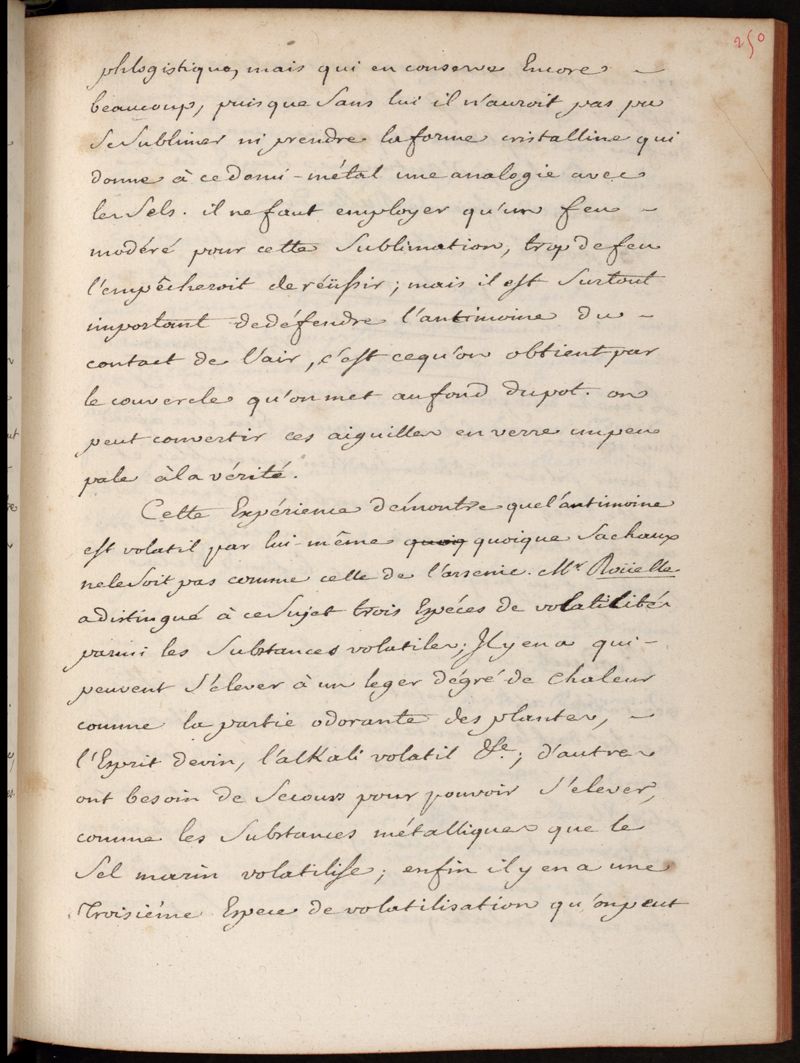 250
phlogistique, mais qui en conserve Encore -
beaucoup, puisque sans lui il n'auroit pas pu
Se Sublimer ni prendre la forme cristalline qui
donne à ce demi-métal une analogie avec
les Sels. il ne faut employer qu'un feu -
modéré pour cette Sublimation, trop de feu
l'empêcheroit de réüssir ; mais il est Surtout
important de défendre l'antimoine du -
contact de l'air, c'est ce qu'on obtient par
le couvercle qu'on met au fond du pot. on
peut convertir ces aiguilles en verre un peu
pale à la vérité.
Cette Expérience démontre que l'antimoine
est volatil par lui-même quoiq quoique Sa chaux
ne le Soit pas comme celle de l'arsenic. Mr Roüelle
a distingué à ce Sujet trois Espéces de volatilités
parmi les Substances volatiles ; Il y en a qui -
peuvent S'élever à un leger dégré de Chaleur
comme la partie odorante des plantes, -
l'Esprit de vin, l'alkali volatil &c. ; d'autres
ont besoin de Secours pour pouvoir S'élever,
comme les Substances métalliques que le
Sel marin volatilise ; enfin il y en a une
Troisiéme Espece de volatilisation qu'on peut